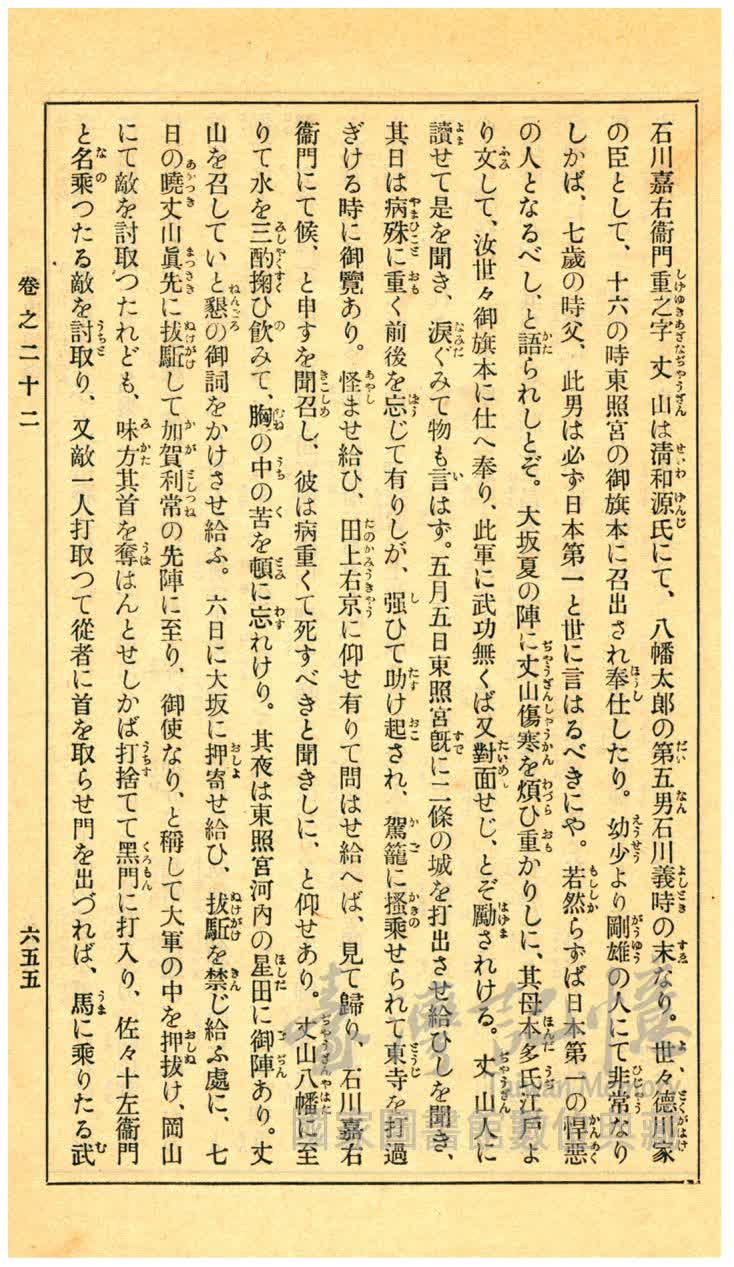 石川嘉右衞門重之字　丈　山は清和源氏にて、八幡太郎の第五男石川義時の末なり。世々德川家
の臣として、十六の時東照宮の御旗本に召出され奉仕したり。幼少より剛雄の人にて非常なり
しかば、七歲の時父、此男は必ず日本第一と世に言はるべきにや。若然らずば日本第一の悍惡
の人となるべし、と語られしとぞ。大坂夏の陣に丈山傷寒を煩ひ重かりしに、其母本多氏江戶よ
り文して、汝世々御旗本に仕へ奉り、此軍に武功無くば又對面せじ、とぞ勵されける。丈山人に
讀せて是を聞き、淚ぐみて物も言はず。五月五日東照宮旣に二條の城を打出させ給ひしを聞き、
其日は病殊に重く前後を忘じて有りしが、强ひて助け起され、駕籠に搔乘せられて東寺を打過
ぎける時に御覽あり。怪ませ給ひ、田上右京に仰せ有りて問はせ給へば、見て歸り、石川嘉右
衞門にて候、と申すを聞召し、彼は病重くて死すべきと聞きしに、と仰せあり。丈山八幡に至
りて水を三酌掬ひ飮みて、胸の中の苦を頓に忘れけり。其夜は東照宮河內の星田に御陣あり。丈
山を召していと懇の御詞をかけさせ給ふ。六日に大坂に押寄せ給ひ、拔駈を禁じ給ふ處に、七
日の曉丈山眞先に拔駈して加賀利常の先陣に至り、御使なり、と稱して大軍の中を押拔け、岡山
にて敵を討取つたれども、味方其首を奪はんとせしかば打捨てて黑門に打入り、佐々十左衞門
と名乘つたる敵を討取り、又敵一人打取つて從者に首を取らせ門を出づれば、馬に乘りたる武
卷之二十二
六五五
臺灣記憶
Taiwan Memory
國家圖書館數位典藏